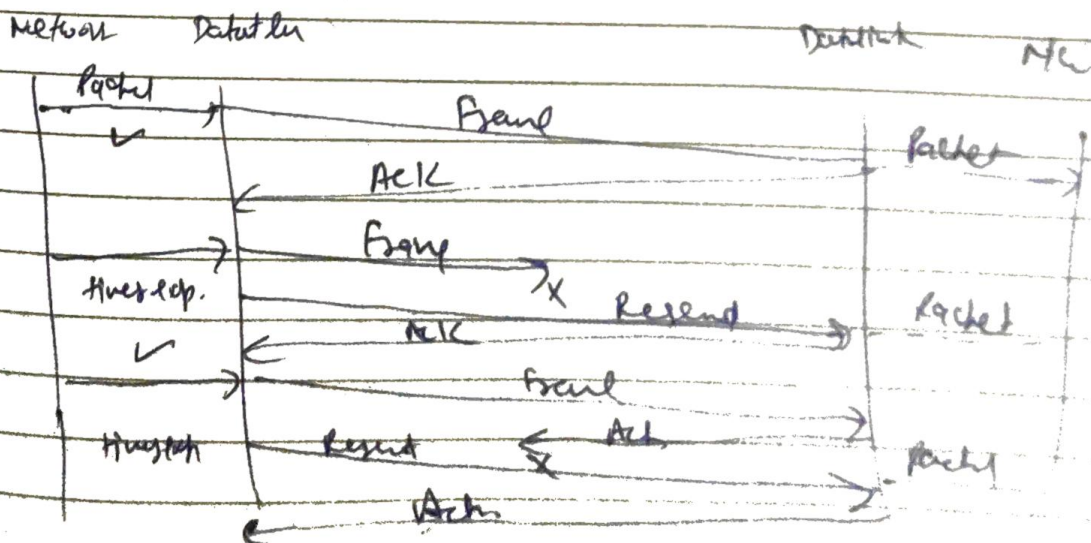 Network Datalin Datalink N/W
Packet Frame Packet
ACK
Frame
Timer exp. Resend Packet
ACK
Frame
Timer exp Resend Ack Packet
Ack